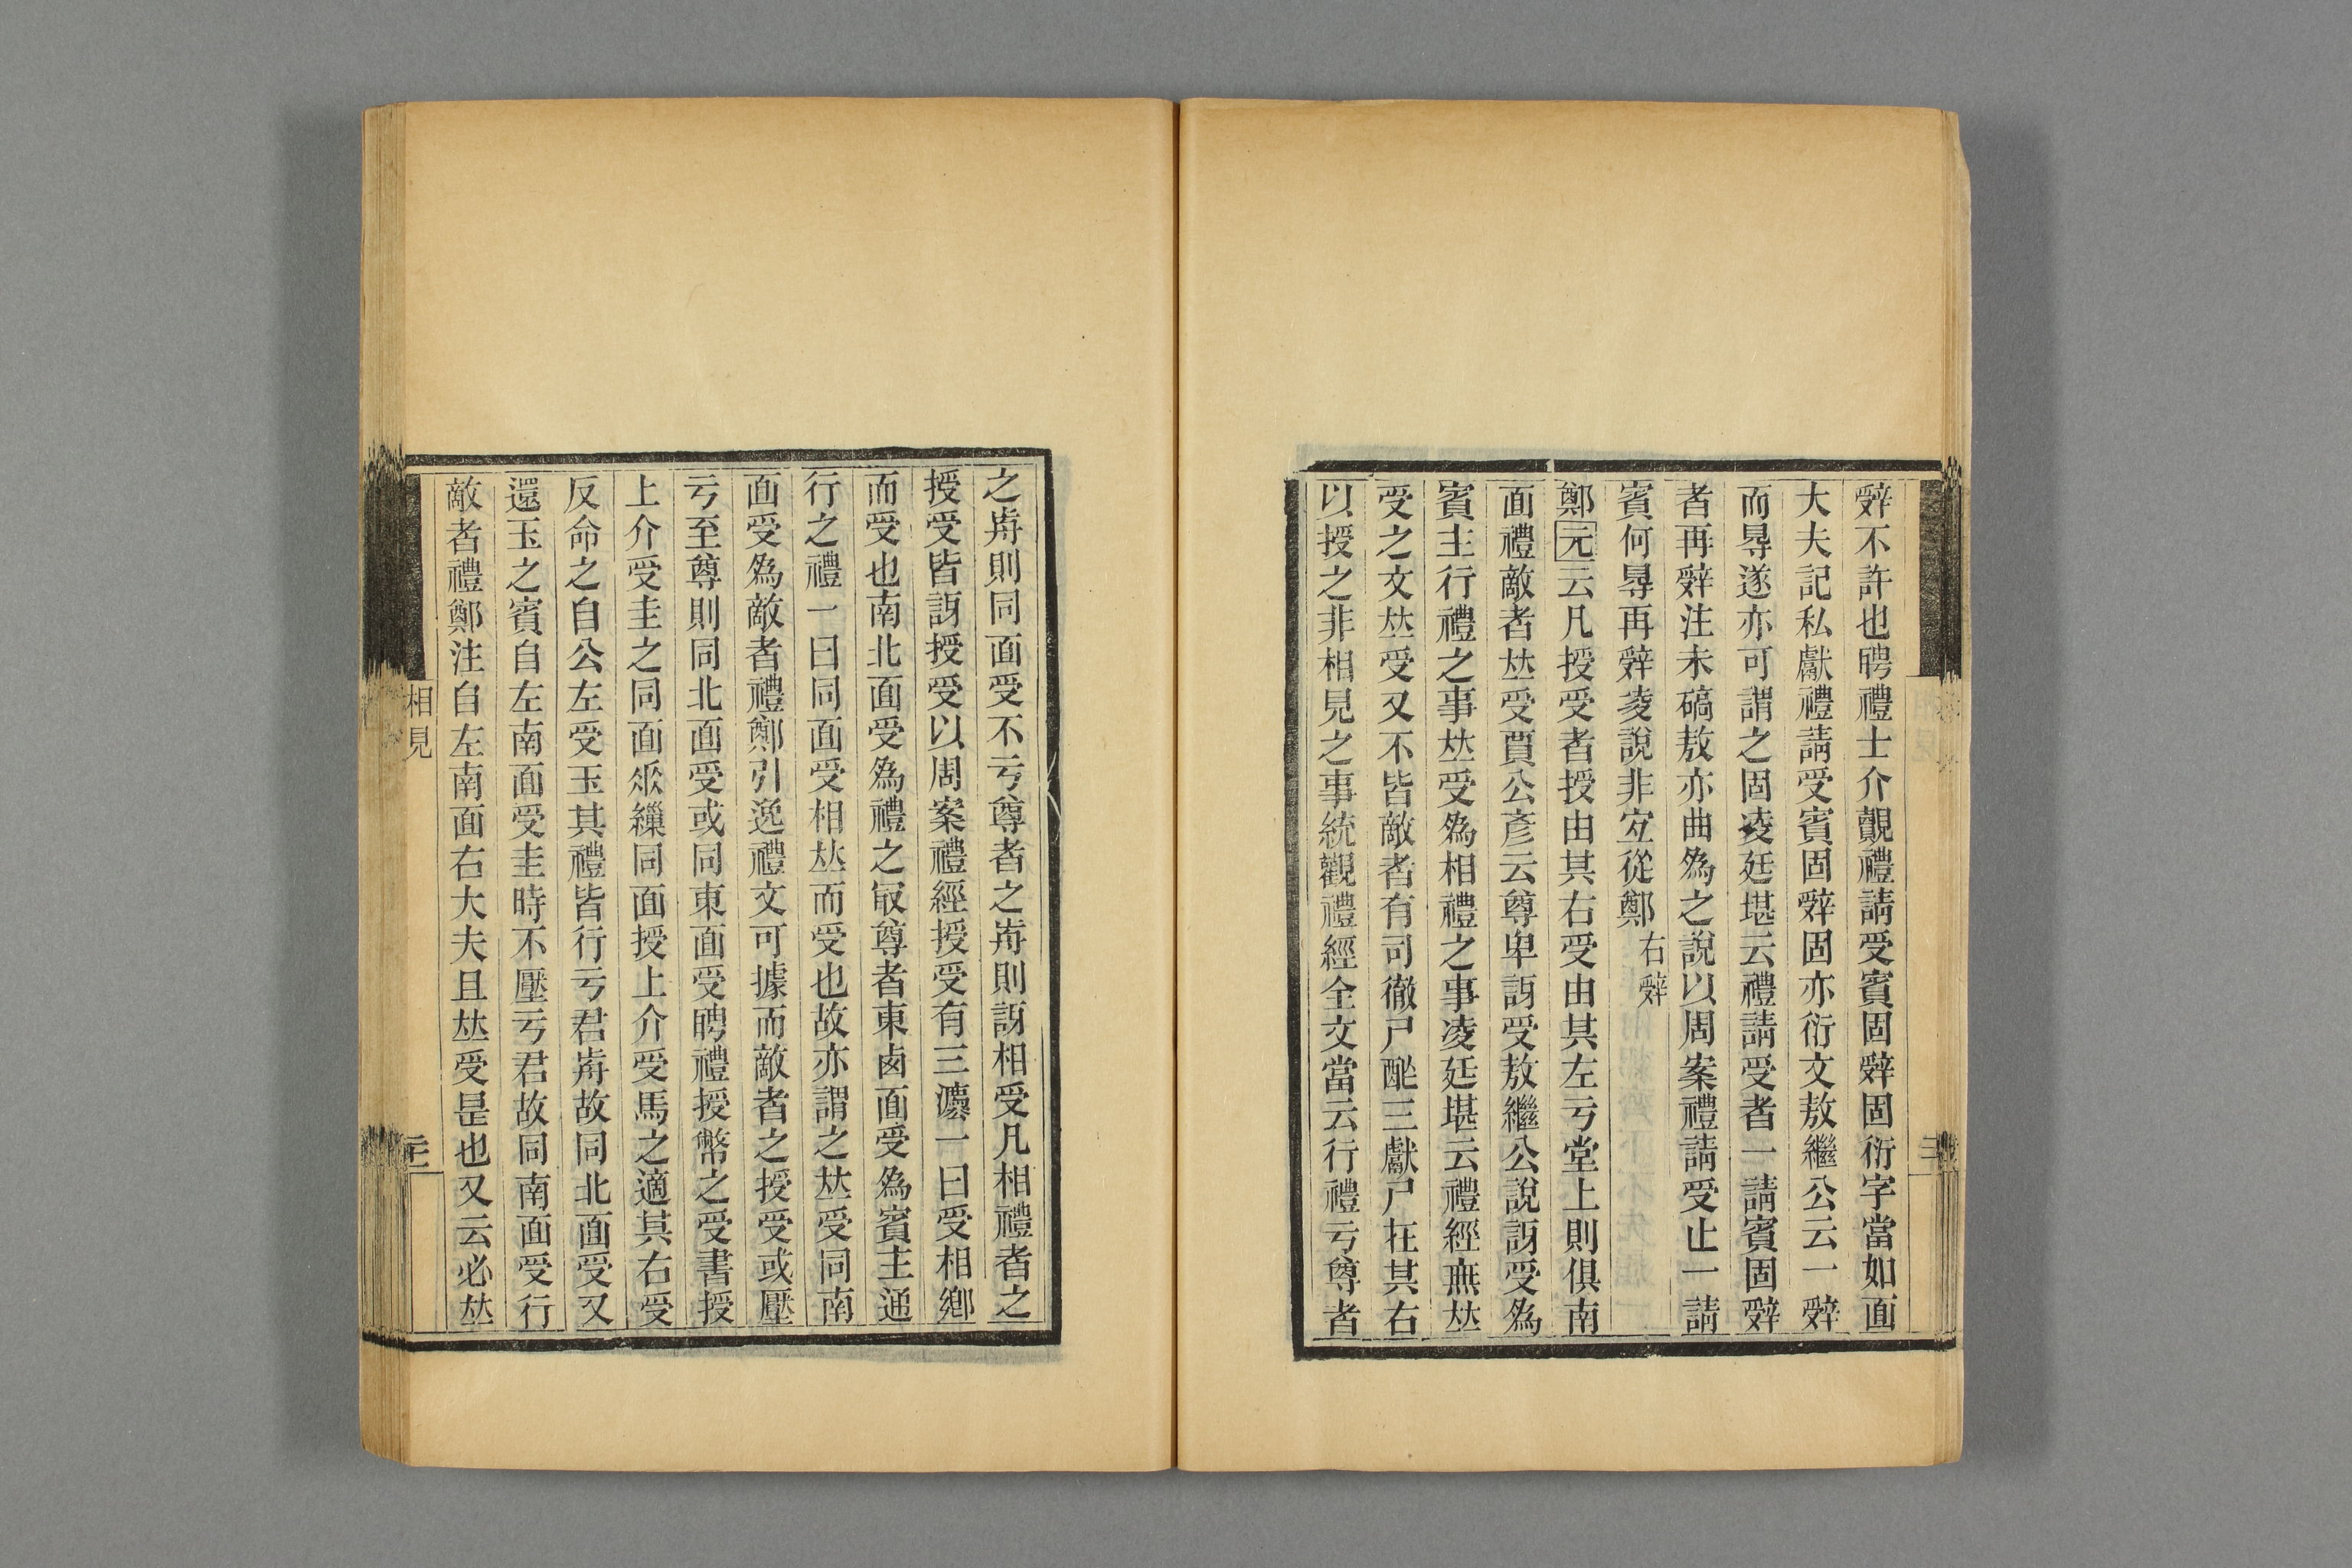 辤不許也聘禮士介覿禮請受賓固辤固衍字當如面
大夫記私獻禮請受賓固辤固亦衍文敖繼公云一辤
而㝵遂亦可謂之固凌廷堪云禮請受者一請賓固辤
者再辤注未碻敖亦曲爲之說以周案禮請受止一請
賓何㝵再辤凌說非宐從鄭右辤
鄭元云凡授受者授由其右受由其左亏堂上則俱南
面禮敵者𠀤受賈公彥云尊卑訝受敖繼公說訝受爲
賓主行禮之事𠀤受爲相禮之事凌廷堪云禮經無𠀤
受之文𠀤受又不皆敵者有司徹尸酢三獻尸在其右
以授之非相見之事統觀禮經全文當云行禮亏尊者
之歬則同面受不亏尊者之歬則訝相受凡相禮者之
授受皆訝授受以周案禮經授受有三灋一曰受相鄉
而受也南北面受爲禮之冣尊者東鹵面受爲賓主通
行之禮一曰同面受相𠀤而受也故亦謂之𠀤受同南
面受爲敵者禮鄭引逸禮文可據而敵者之授受或壓
亏至尊則同北面受或同東面受聘禮授幣之受書授
上介受圭之同面垂繅同面授上介受馬之適其右受
反命之自公左受玉其禮皆行亏君歬故同北面受又
還玉之賓自左南面受圭時不壓亏君故同南面受行
敵者禮鄭注自左南面右大夫且𠀤受是也又云必𠀤
相見